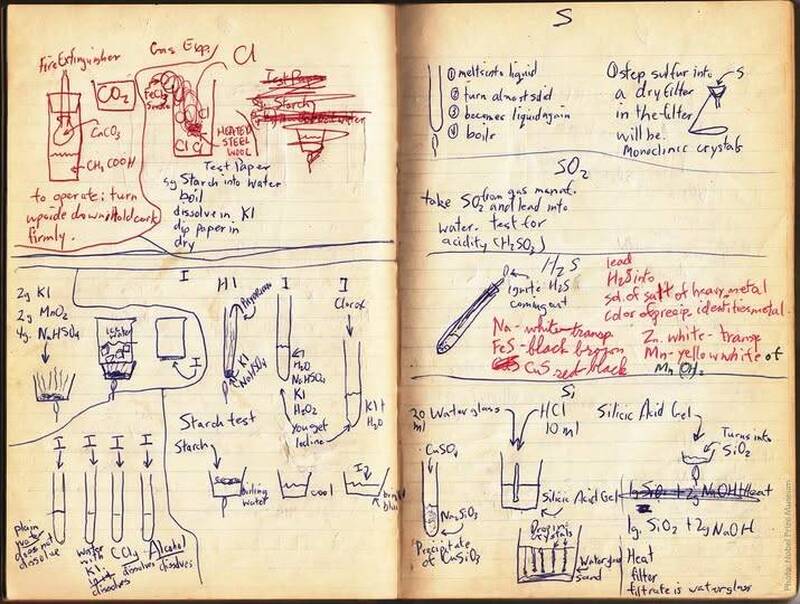 Fire Extinguisher
CaCO3
CH3COOH
to operate: turn
upside down. Hold cork
firmly.
CO2
Gas Exp.
Cl
FeCl3
Smoke
Cl
Cl
HEATED
STEEL
WOOL
Test Paper
Starch
Test Paper
5g Starch into water
boil
dissolve in KI
dip paper in
dry
I
2g KI
2g MnO2
4g. NaHSO4
I
HI
KI
NaHSO4
I
H2O
NaHSO4
KI
H2O2
you get
Iodine
I
Clorox
KI+
H2O
Starch test
Starch
boiling
water
cool
I2
blue
I
I
I
I
plain
water
does not
dissolve
water
with
KI
dissolves
CCl4
dissolves
Alcohol
dissolves
S
① melts into liquid
② turn almost solid
③ becomes liquid again
④ boils
① step sulfur into
a dry filter
in the filter
will be
Monoclinic crystals
S
SO2
take SO2 from gas
and lead into
water. test for
acidity (H2SO3)
H2S
ignite H2S
coming out
lead
H2S into
sol. of salt of heavy metal
color of precip. identifies metal.
Na - white - transp
FeS - black brown
CuS red black
Zn. white - transp
Mn - yellow white of
Mn(OH)2
Si
20 Waterglass
ml
HCl
10 ml
Silicic Acid Gel
Silicic Acid Gel
Turns into
SiO2
CuSO4
Na2SiO3
Precipitate
of CuSiO3
Dropin
crystals
Waterglass
sand
1g SiO2 + 2g NaOH + Heat
1g. SiO2 + 2g NaOH
Heat
filter
filtrate is waterglass
Photo: Nobel Prize Museum